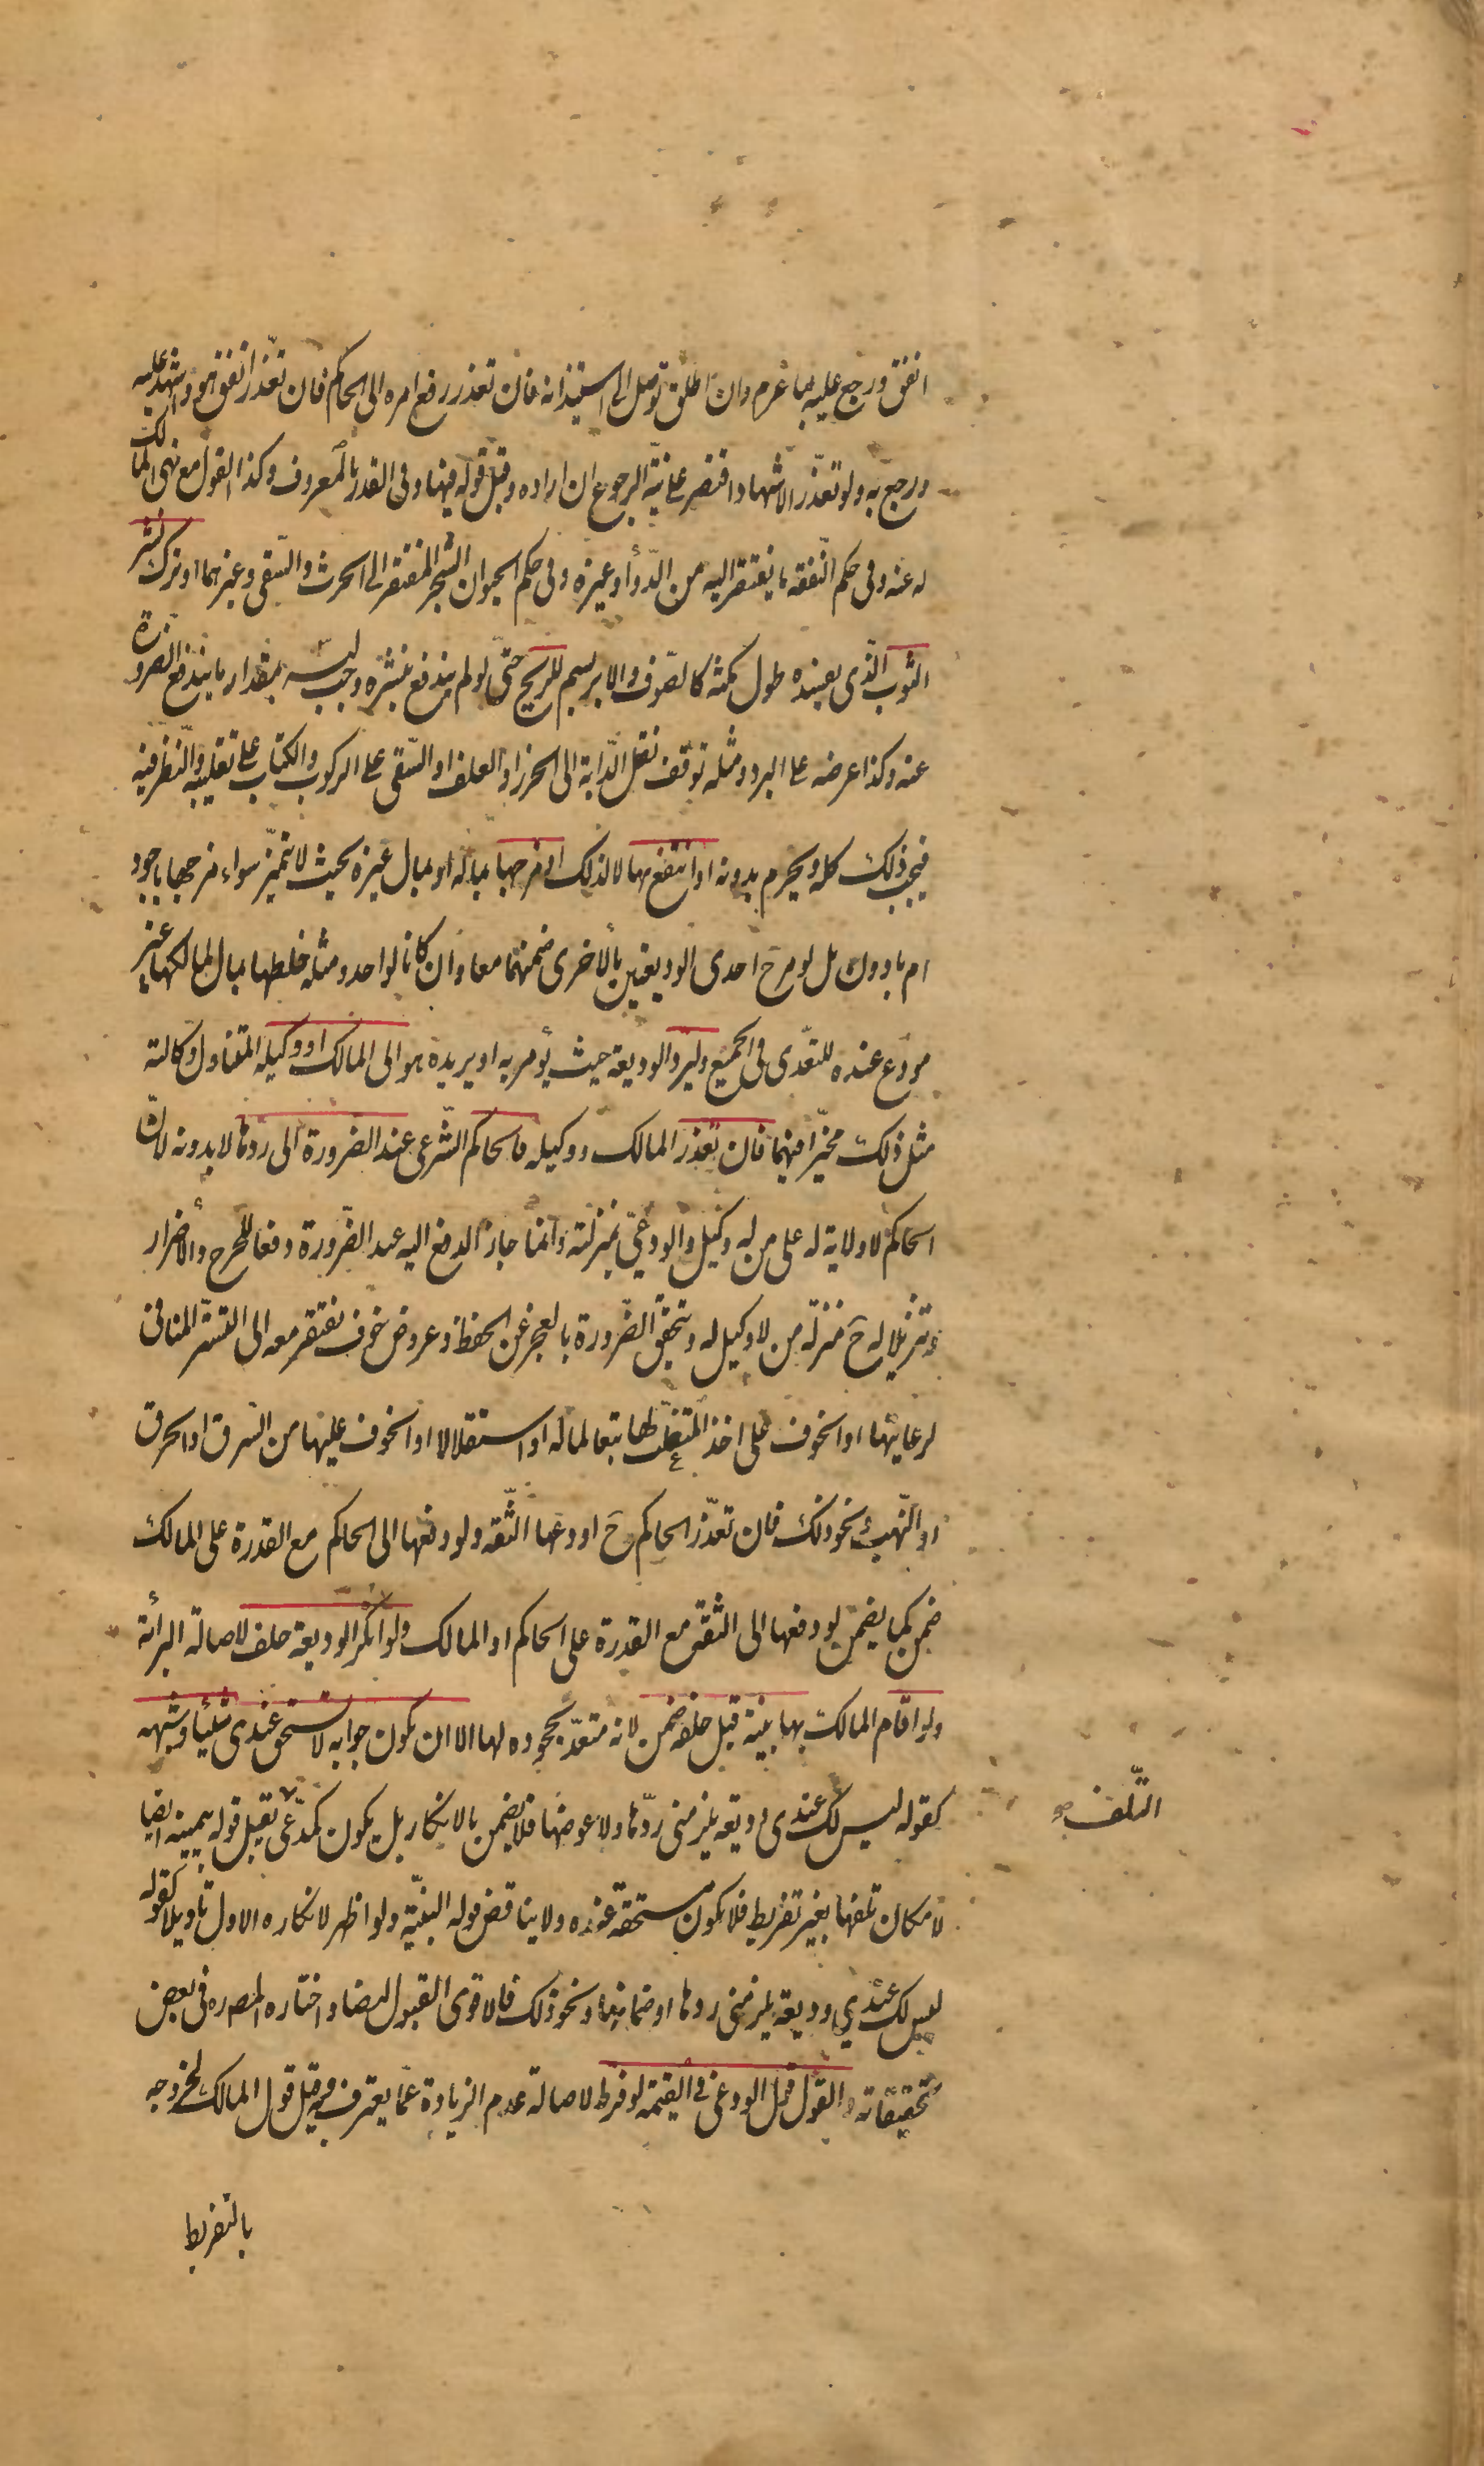 انفق ورجع عليه بما غرم وان اطلق توصل الى استيذانه فان تعذر رفع امره الى الحاكم فان تعذر انفق هو واشهد عليه
ورجع به ولو تعذر الاشهاد اقتصر على نية الرجوع ان اراده وقبل قوله فيها وفي القدر بالمعروف وكذا القول مع نهى المالك
له عنه وفي حكم النفقه ما يفتقر اليه من الدوأ وغيره وفي حكم الحيوان الشجر المفتقر الى الحرث والسقى وغيرهما او ترك نشر
الثوب الذى يفسده طول مكثه كالصوف والابريسم للريح حتى لو لم يندفع بنشره وجب لبسه بمقدار ما يندفع الضرورة
عنه وكذا عرضه على البرد ومثله توقف نقل الدابة الى الحرز او العلف او السقى على الركوب والكتاب على تقليبه والنظر فيه
فيجب ذلك كله ويحرم بدونه او انتفع بها لا لذلك او مزجها بماله او بمال غيره بحيث لا تتميز سواء مزجها باجود
ام بادون بل لو مزج احدى الوديعتين بالاخرى ضمنهما معا وان كانا لواحد ومثله خلطها بمال لمالكها غير
مودع عنده للتعدى فى الجميع وليرد الوديعة حيث يؤمر به او يريده هو الى المالك او وكيله المتناول وكالته
مثل ذلك مخيرا فيهما فان تعذر المالك ووكيله فالحاكم الشرعى عند الضرورة الى ردها لا بدونه لان
الحاكم لا ولاية له على من له وكيل والودعى بمنزلته وانما جاز الدفع اليه عند الضرورة دفعا للحرج والاضرار
وتنزيلا له ح منزلة من لا وكيل له وتتحقق الضرورة بالعجز عن الحفظ وعروض خوف يفتقر معه الى التستر المنافى
لرعايتها او الخوف على اخذ المتغلب لها تبعا لماله او استقلالا او الخوف عليها من السرق او الحرق
او النهب ونحو ذلك فان تعذر الحاكم ح اودعها الثقه ولو دفعها الى الحاكم مع القدرة على المالك
ضمن كما يضمن لو دفعها الى الثقة مع القدرة على الحاكم او المالك ولو انكر الوديعة حلف لاصالة البرائة
ولو اقام المالك بها بينة قبل حلفه ضمن لانه متعد بجحوده لها الا ان يكون جوابه لا تستحق عندى شيئا وشبهه
كقوله ليس لك عندى وديعه يلزمنى ردها ولا عوضها فلا يضمن بالانكار بل يكون كمدعى التلف يقبل قوله بيمينه ايضا
لامكان تلفها بغير تفريط فلا تكون مستحقة عنده ولا يناقض قوله البينة ولو اظهر لانكاره الاول تاويلا كقوله
ليس لك عندي وديعة يلزمنى ردها او ضمانها ونحو ذلك فالاقوى القبول ايضا واختاره المصره فى بعض
تحقيقاته والقول قول الودعى في القيمة لو فرط لاصالة عدم الزيادة عما يعترف به وقيل قول المالك لخروجه
بالتفريط
التلف صح